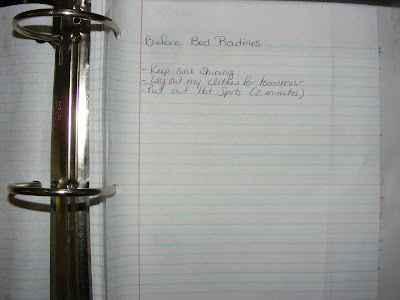 Before Bed Routines
- Keep sink shining
- Lay out my clothes for tomorrow
- Put out Hot Spots (2 minutes)